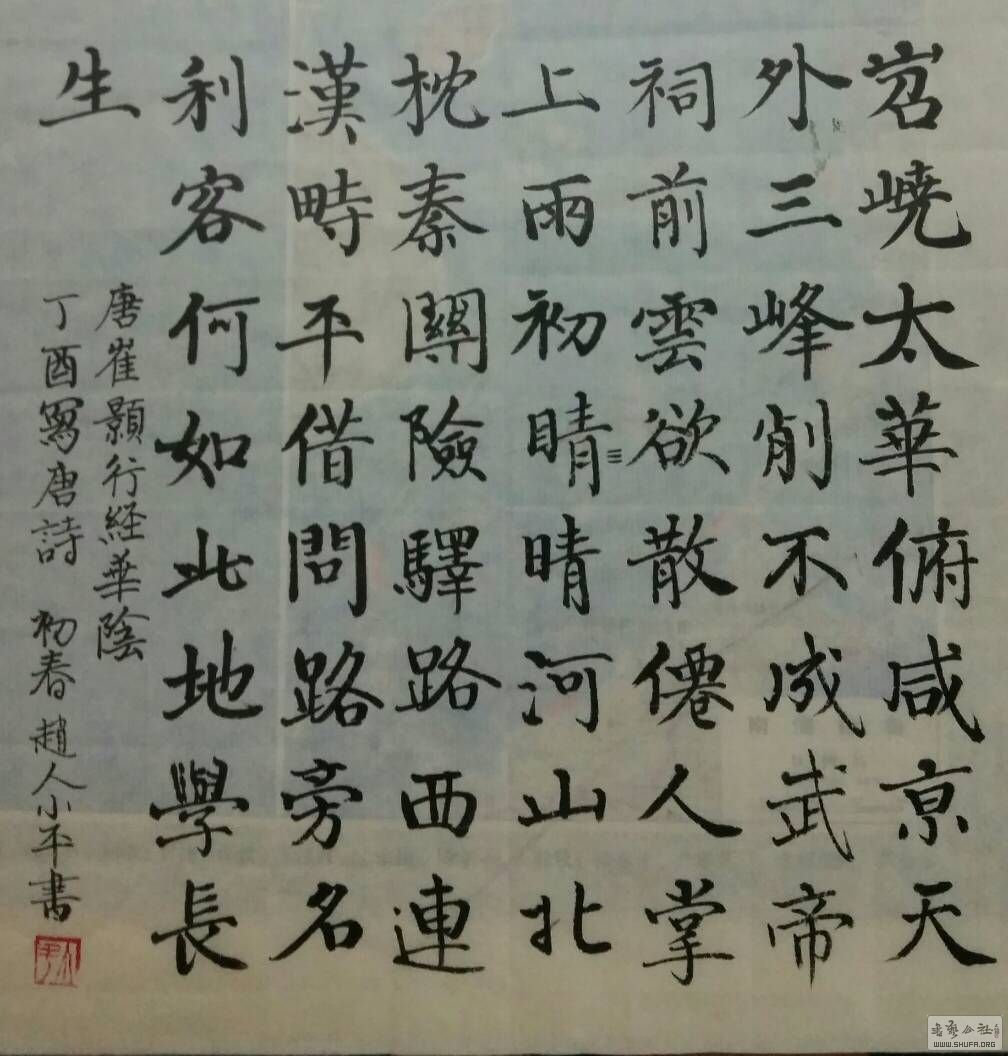 岧嶢太華俯咸京天
外三峰削不成武帝
祠前雲欲散僊人掌
上雨初晴晴河山北
枕秦關險驛路西連
漢畤平借問路旁名
利客何如此地學長
生
唐崔顥行経華陰
丁酉寫唐詩 初春趙人小平書
WWW.SHUFA.ORG